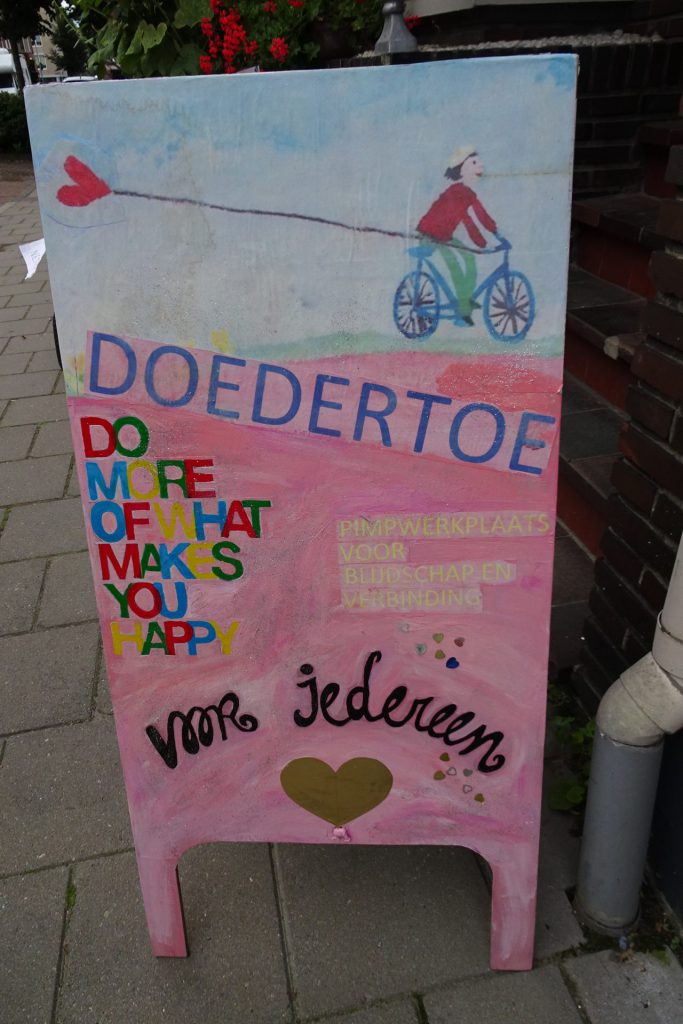 DOEDERTOE
DO
MORE
OF WHAT
MAKES
YOU
HAPPY
PIMPWERKPLAATS
VOOR
BLIJDSCHAP EN
VERBINDING
voor iedereen